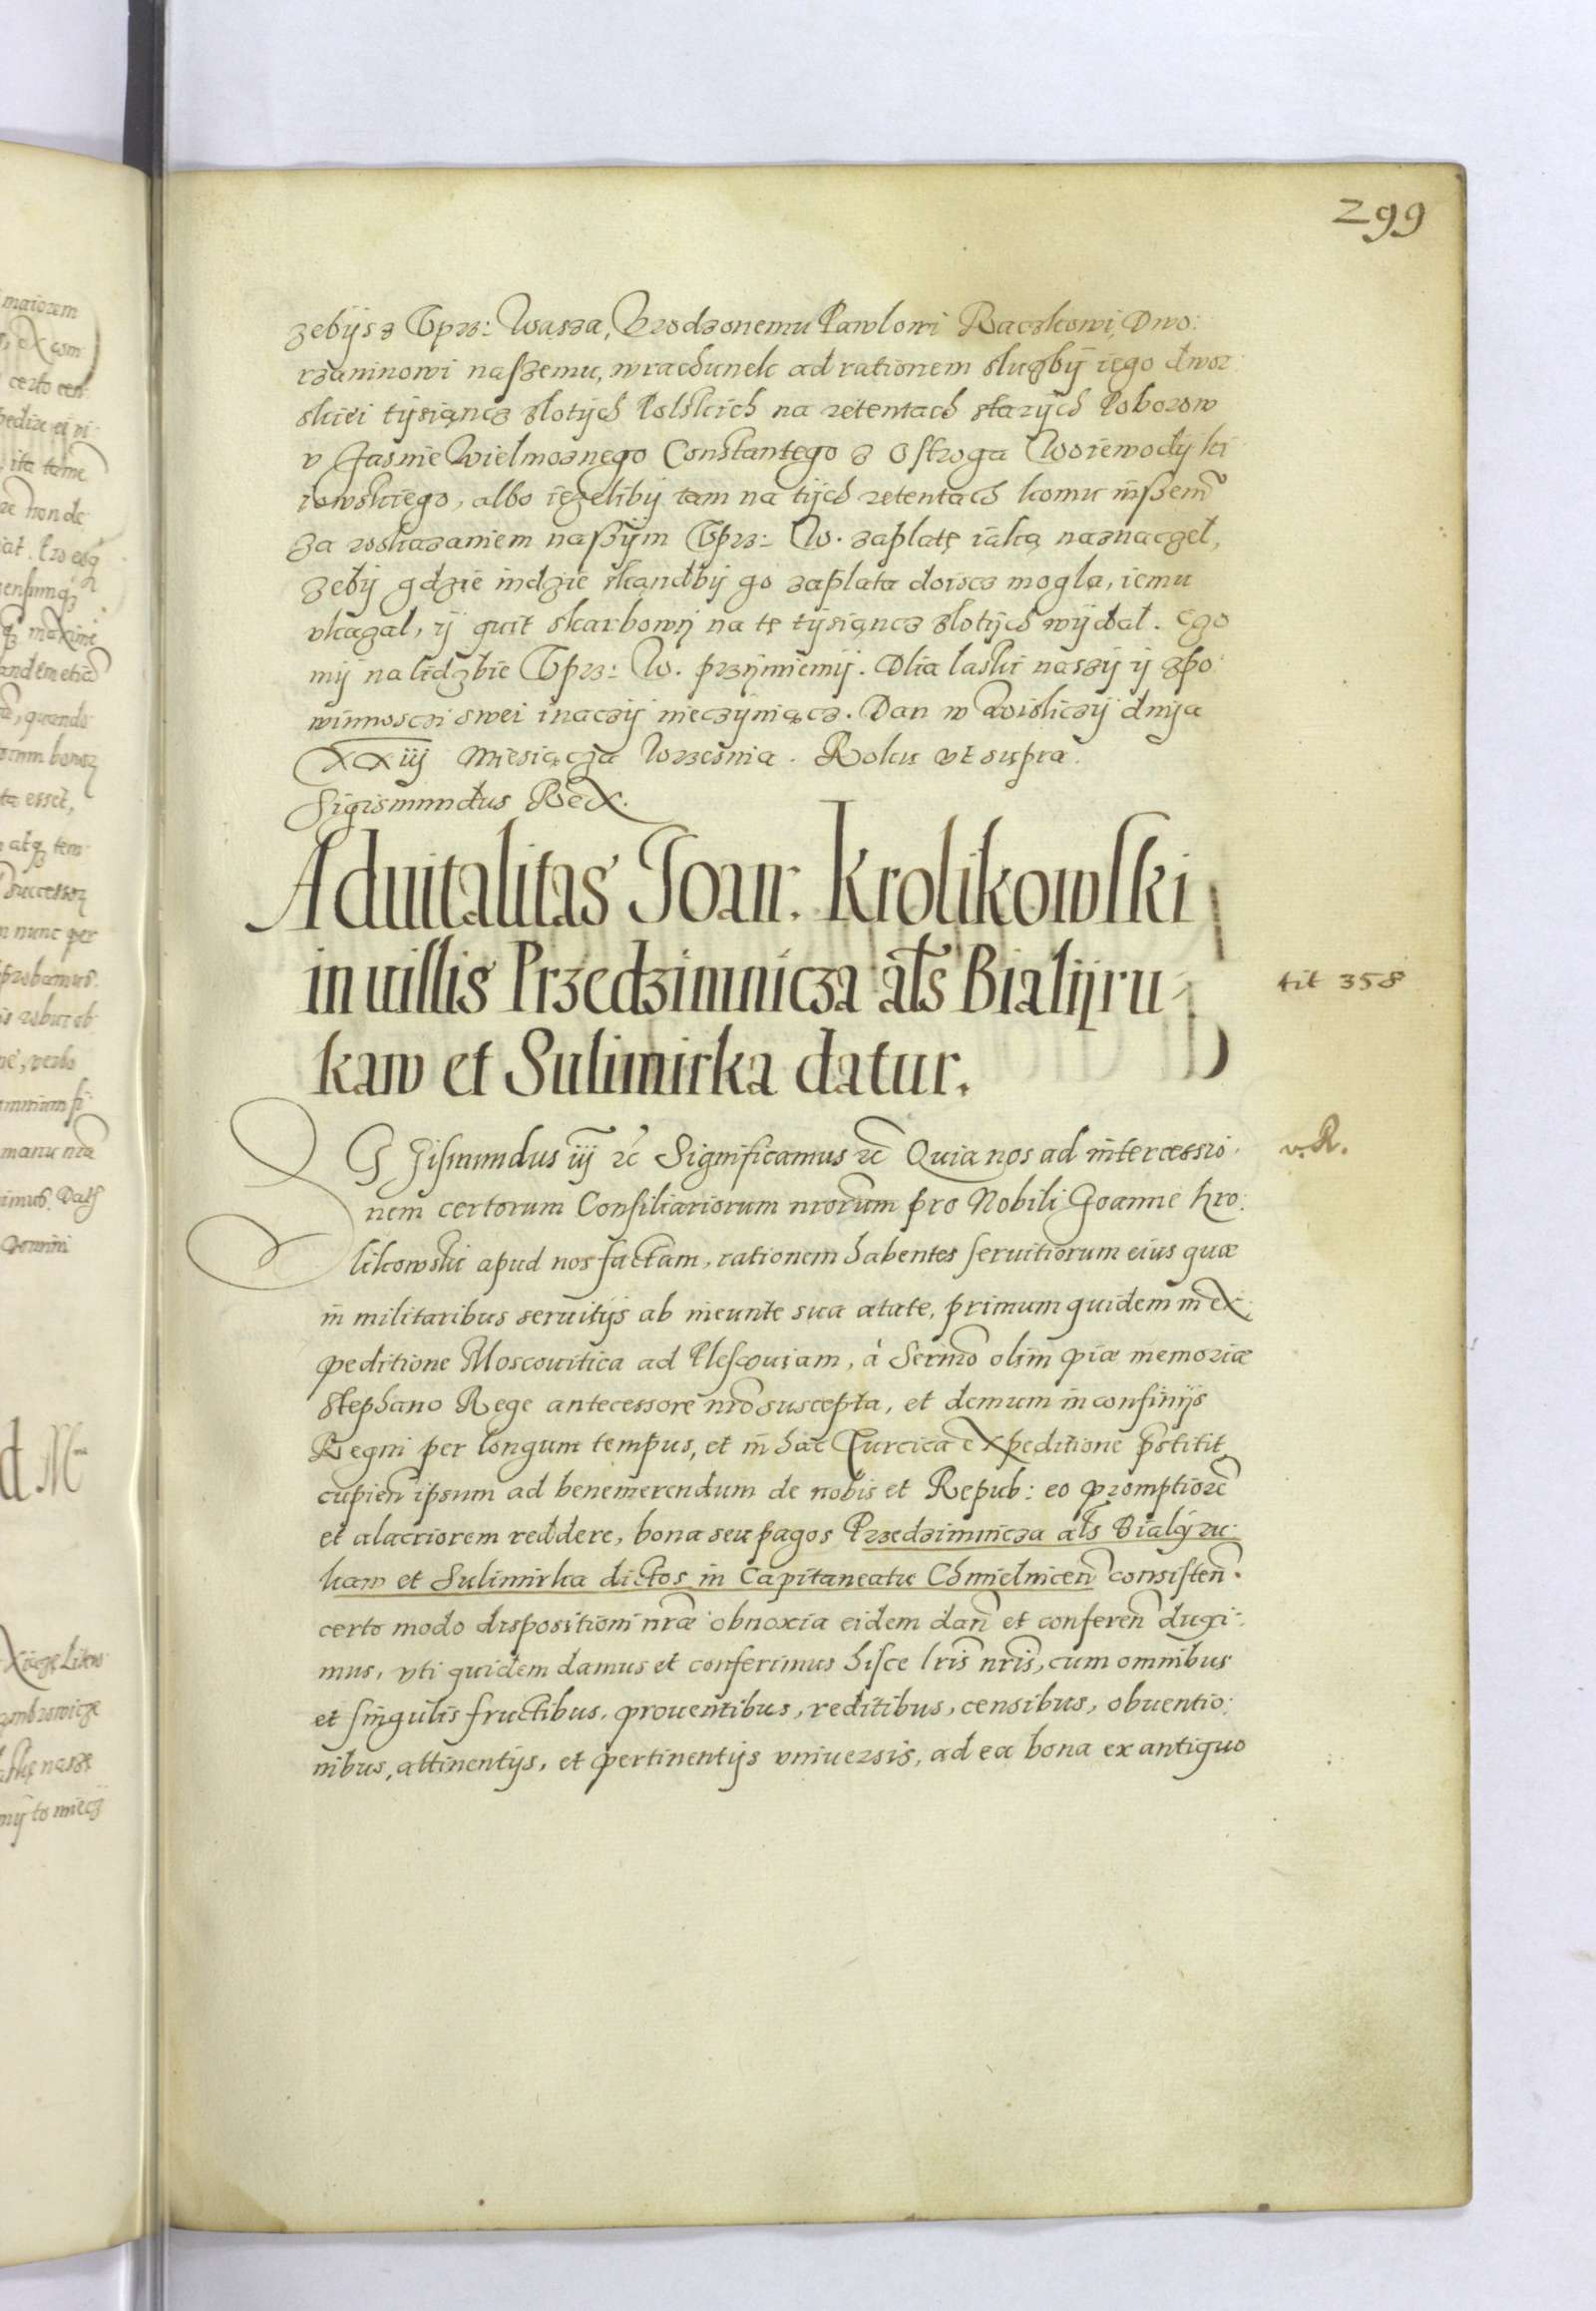 299
żebyś Vprz: Wasza, Vrodzonemu Pawlowi Raczkowi, Dwo:
rzaninowi naszemu, wrachunek ad rationem służby iego dwor
skiei tysiącz złotych Polskich na retentach starych Poborow
v Jasnie Wielmoznego Constantego z Ostroga Woiewody ki
iowskiego, albo iezeliby tam na tych retentach komu inszemu
za roskazaniem naszym Vprz: W. zaplatę iaką naznaczel,
zeby gdzie indzie skandby go zaplata doiscz mogla, iemu
vkazal, y quit skarbowy na tę tysiącz złotych wydal. Czo
my na lidzbie Vprz: W. przymiemy. Dlia laski naszy y zpo
winnosczi swei inaczy nieczyniącz. Dan w Wisliczy dnya
XXiij Miesiącza Wrzesnia. Roku vt supra.
Sigismundus Rex.
Aduitalitas Joan: Krolikowski
in uillis Przedzimnicza als Bialyru
kaw et Sulimirka datur.
tit 358
Sigismundus iij rc Significamus rc Quia nos ad intercessio
v. R.
nem certorum Consiliariorum nrorum pro Nobili Joanne Kro:
likowski apud nos factam, rationem habentes seruitiorum eius quæ
in militaribus seruitijs ab ineunte sua ætate, primum quidem in ex
peditione Moscouitica ad Plescouiam, à Sermo olim piæ memoriæ
Stephano Rege antecessore nro suscepta, et demum in confinijs
Regni per longum tempus, et in hac Turcica expeditione pstitit
cupien ipsum ad benemerendum de nobis et Repub: eo promptiore
et alacriorem reddere, bona seu pagos Przedzimnicza als Bialyru:
kaw et Sulimirka dictos in Capitaneatu Chmielnicen consisten.
certo modo dispositioni nræ obnoxia eidem dan et conferen duxi:
mus, vti quidem damus et conferimus hisce lris nris, cum omnibus
et singulis fructibus, prouentibus, reditibus, censibus, obuentio:
nibus, attinentijs, et pertinentijs vniuersis, ad ea bona ex antiquo